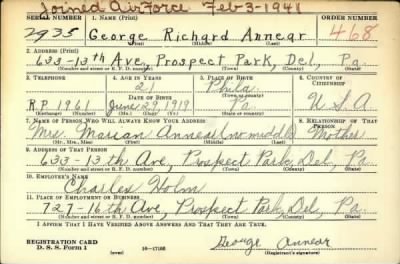 Joined Air Force Feb-3-1941
SERIAL NUMBER 1. NAME (Print) ORDER NUMBER
2935 George Richard Annear 468
(First) (Middle) (Last)
2. ADDRESS (Print)
633-13th Ave, Prospect Park, Del, Pa.
(Number and street or R. F. D. number) (Town) (County) (State)
3. TELEPHONE 4. AGE IN YEARS 5. PLACE OF BIRTH 6. COUNTRY OF CITIZENSHIP
21 Phila.
DATE OF BIRTH (Town or county)
R.P. 1961 June 29, 1919 Pa U S A
(Exchange) (Number) (Mo.) (Day) (Yr.) (State or country)
7. NAME OF PERSON WHO WILL ALWAYS KNOW YOUR ADDRESS 8. RELATIONSHIP OF THAT PERSON
Mrs. Marian Annear (no middle) Mother
(Mr., Mrs., Miss) (First) (Middle) (Last)
9. ADDRESS OF THAT PERSON
633-13th Ave, Prospect Park, Del, Pa.
(Number and street or R. F. D. number) (Town) (County) (State)
10. EMPLOYER'S NAME
Charles Holm
11. PLACE OF EMPLOYMENT OR BUSINESS
727-16th Ave, Prospect Park, Del, Pa.
(Number and street or R. F. D. number) (Town) (County) (State)
I AFFIRM THAT I HAVE VERIFIED ABOVE ANSWERS AND THAT THEY ARE TRUE.
REGISTRATION CARD George Annear
D. S. S. Form 1 16-17105 (Registrant's signature)